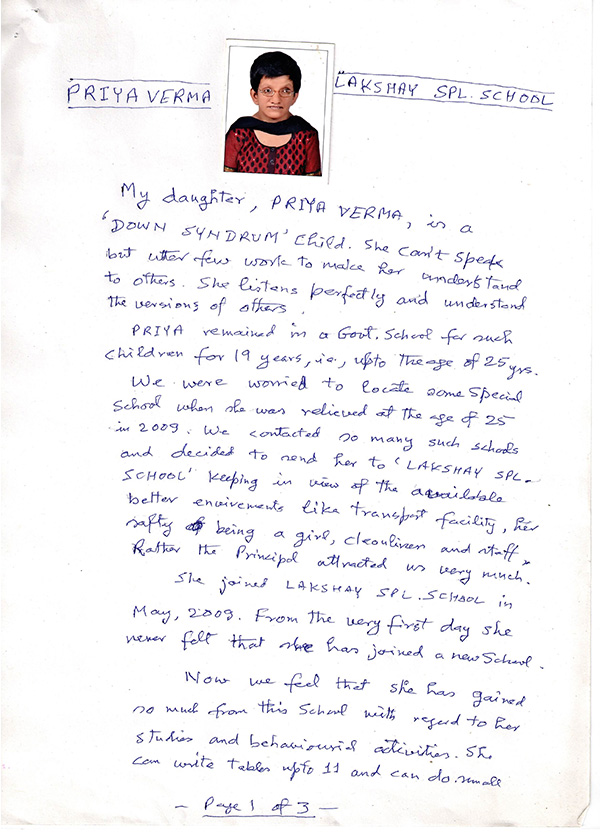 PRIYA VERMA
LAKSHAY SPL. SCHOOL
My daughter, PRIYA VERMA, is a
'DOWN SYNDRUM' child. She can't speak
but utter few work to make her understand
to others. She listens perfectly and understand
the versions of others.
PRIYA remained in a Govt. School for such
children for 19 years, i.e., upto the age of 25 yrs.
We were worried to locate some special
School when she was relieved at the age of 25
in 2009. We contacted so many such schools
and decided to send her to 'LAKSHAY SPL.
SCHOOL' keeping in view of the available
better envirements like transport facility, her
safty of being a girl, cleanliness and staff.
Rather the Principal attracted us very much.
She joined LAKSHAY SPL. SCHOOL in
May, 2009. From the very first day she
never felt that she has joined a new School.
Now we feel that she has gained
so much from this School with regard to her
studies and behaviourial activities. She
can write tables upto 11 and can do small
- Page 1 of 3 -